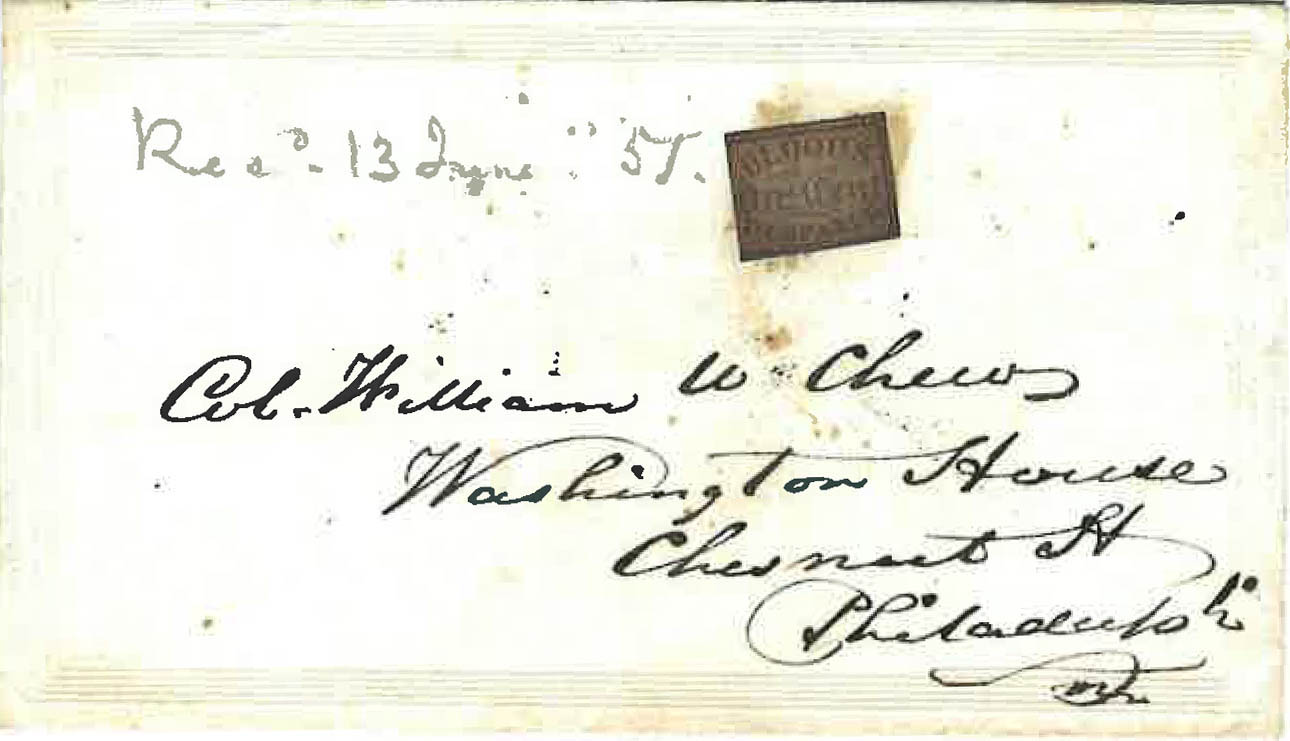 Recd. 13 June " 57.
Col. William W Chew
Washington House
Chesnut St
Philadelph